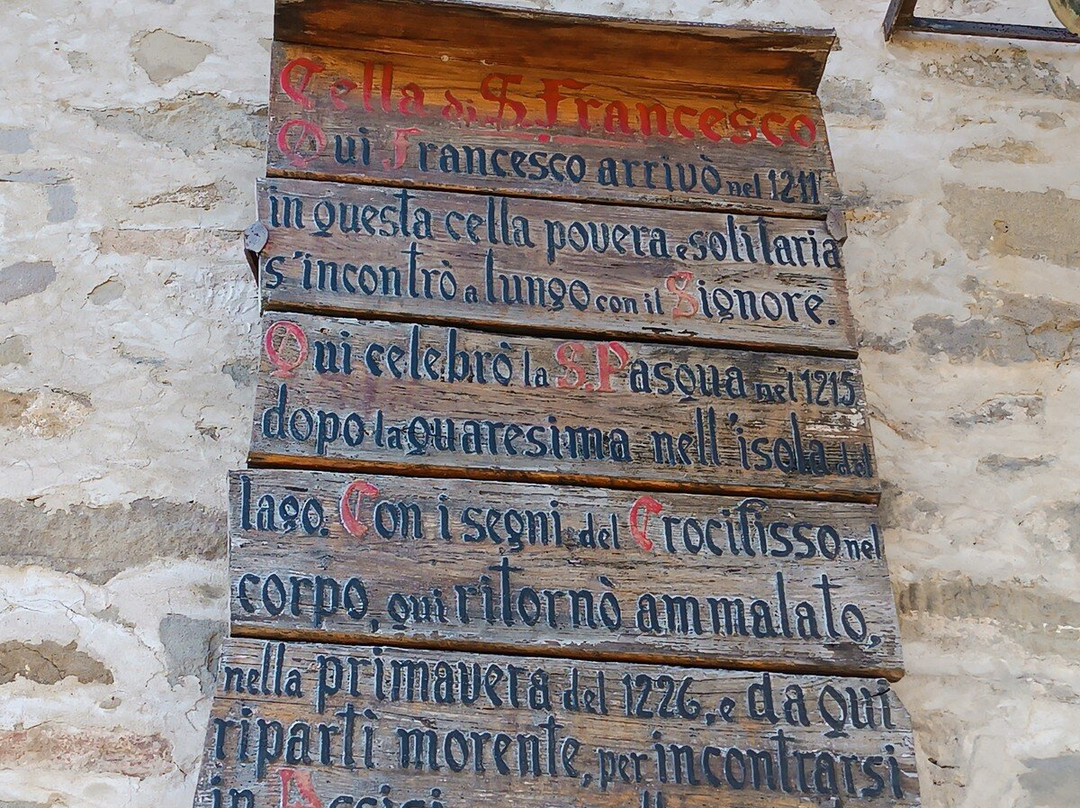 Cella di S. Francesco
Qui Francesco arrivò nel 1211
in questa cella povera e solitaria
s'incontrò a lungo con il Signore.
Qui celebrò la S. Pasqua nel 1215
dopo la quaresima nell'isola del
lago. Con i segni del Crocifisso nel
corpo, qui ritornò ammalato,
nella primavera del 1226, e da qui
ripartì morente, per incontrarsi
in Assisi